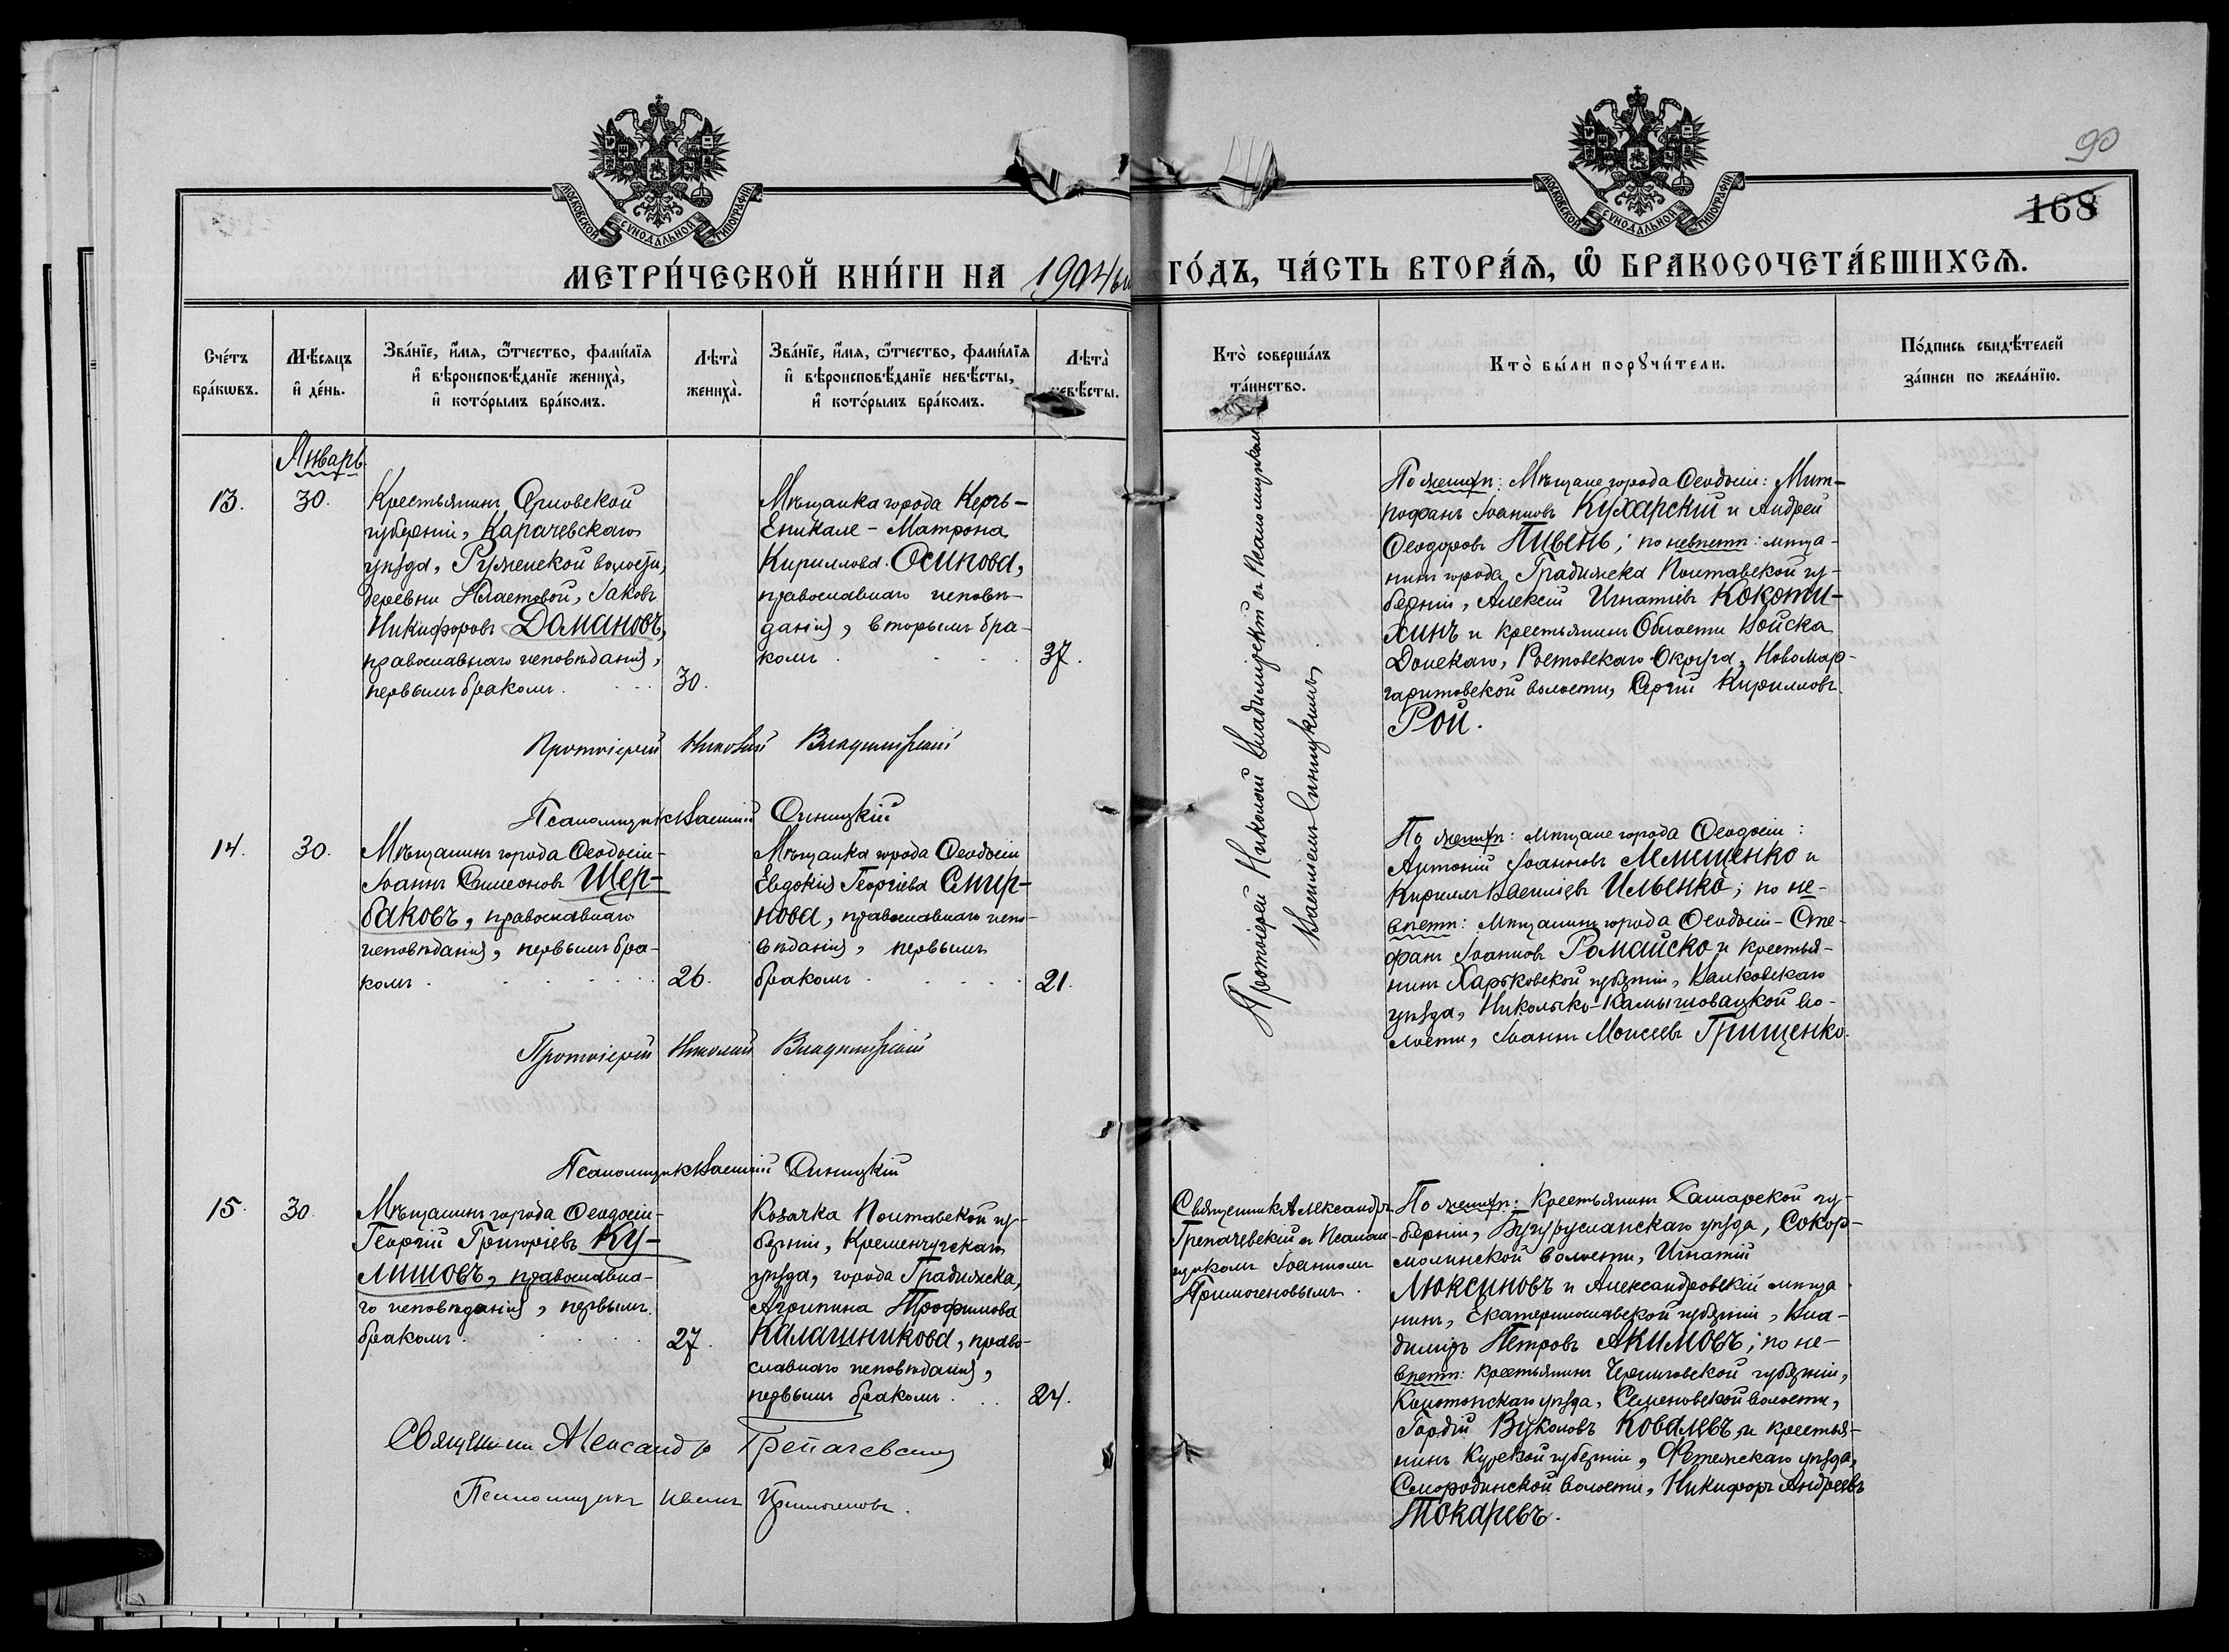 МОСКОВСКОЙ СѴНОДАЛЬНОЙ ТИПОГРАФІИ
МОСКОВСКОЙ СѴНОДАЛЬНОЙ ТИПОГРАФІИ
90
168
МЕТРИ́ЧЕСКОЙ КНИ́ГИ НА 1904 ГО́ДЪ, ЧА́СТЬ ВТОРА́Я, Ѽ БРАКОСОЧЕТА́ВШИХСЯ.
Сче́тъ
бра́кѡвъ.
Мѣ́сяцъ
и҆ де́нь.
Зва́нїе, и҆́мя, ѻ҆́тчество, фами́лїя
и҆ вѣроисповѣ́данїе жениха̀,
и҆ кото́рымъ бра́комъ.
Лѣта̀
жениха̀.
Зва́нїе, и҆́мя, ѻ҆́тчество, фами́лїя
и҆ вѣроисповѣ́данїе невѣ́сты,
и҆ кото́рымъ бра́комъ.
Лѣта̀
невѣ́сты.
Кто̀ соверша́лъ
та́инство.
Кто̀ бы́ли порꙋчи́тели.
По́дпись свидѣ́телей
за́писи по жела́нїю.
Январь
13.
30.
Крестьянинъ Орловской
губерніи, Карачевскаго
уѣзда, Руженской волости,
деревни Яковъ
Никифоровъ Домановъ,
православнаго исповѣданія,
первымъ бракомъ.
30.
Мѣщанка города Керчь-
Еникале - Матрона
Кириллова Осипова,
православнаго исповѣ-
данія, вторымъ бра-
комъ
37.
Протоіерей Николай Владимірскій и Псаломщикомъ
Василіемъ Синицкимъ.
По женихѣ: Мѣщане города Ѳеодосіи: Мит-
рофанъ Іоанновъ Кухарскій и Андрей
Ѳеодоровъ Пивень; по невѣстѣ: мѣща-
нинъ города Градижска Полтавской гу-
берніи, Алексій Игнатіевъ Кокоти-
хинъ и крестьянинъ Области Войска
Донскаго, Ростовскаго Округа, Ново-Мар-
гаритовской волости, Сергій Кирилловъ
Рой.
Протоіерей Николай Владимірскій
Псаломщикъ Василій Синицкій
14.
30.
Мѣщанинъ города Ѳеодосіи-
Іоаннъ Симеоновъ Щер-
баковъ, православнаго
исповѣданія, первымъ бра-
комъ
26.
Мѣщанка города Ѳеодосіи
Евдокія Георгіева Смир-
нова, православнаго испо-
вѣданія, первымъ
бракомъ
21.
По женихѣ: мѣщане города Ѳеодосіи:
Антоній Іоанновъ и
Кириллъ Василіевъ Ильенко; по не-
вѣстѣ: Мѣщанинъ города Ѳеодосіи - Сте-
фанъ Іоанновъ и крестья-
нинъ Харьковской губерніи, Валковскаго
уѣзда, Николько-Камышовацкой во-
лости, Іоаннъ Моисеевъ Грищенко.
Протоіерей Николай Владимірскій
Псаломщикъ Василій Синицкій
15.
30.
Мѣщанинъ города Ѳеодосіи-
Георгій Григоріевъ Ку-
лишовъ, православна-
го исповѣданія, первымъ
бракомъ.
27.
Козачка Полтавской гу-
берніи, Кременчугскаго
уѣзда, города Градижска,
Агрипина Трофимова
Калашникова, право-
славнаго исповѣданія,
первымъ бракомъ.
24.
Священникъ Александръ
Трепачевскій и Псалом-
щикомъ Іоанномъ
Примогеновымъ.
По женихѣ: крестьянинъ Самарской гу-
берніи, Бугурусланскаго уѣзда, Сокор-
молинской волости, Игнатій
Люксиновъ и Александровскій мѣща
нинъ, Екатеринославской губерніи, Вла-
диміръ Петровъ Акимовъ; по не-
вѣстѣ: крестьянинъ Черниговской губерніи,
Конотопскаго уѣзда, Семеновской волости,
Гордій Вуколовъ Ковалевъ и крестья-
нинъ Курской губерніи, Фатежскаго уѣзда,
Смородинской волости, Никифоръ Андреевъ
Токаревъ.
Священникъ Александръ Трепачевскій
Псаломщикъ Иванъ Примогеновъ.